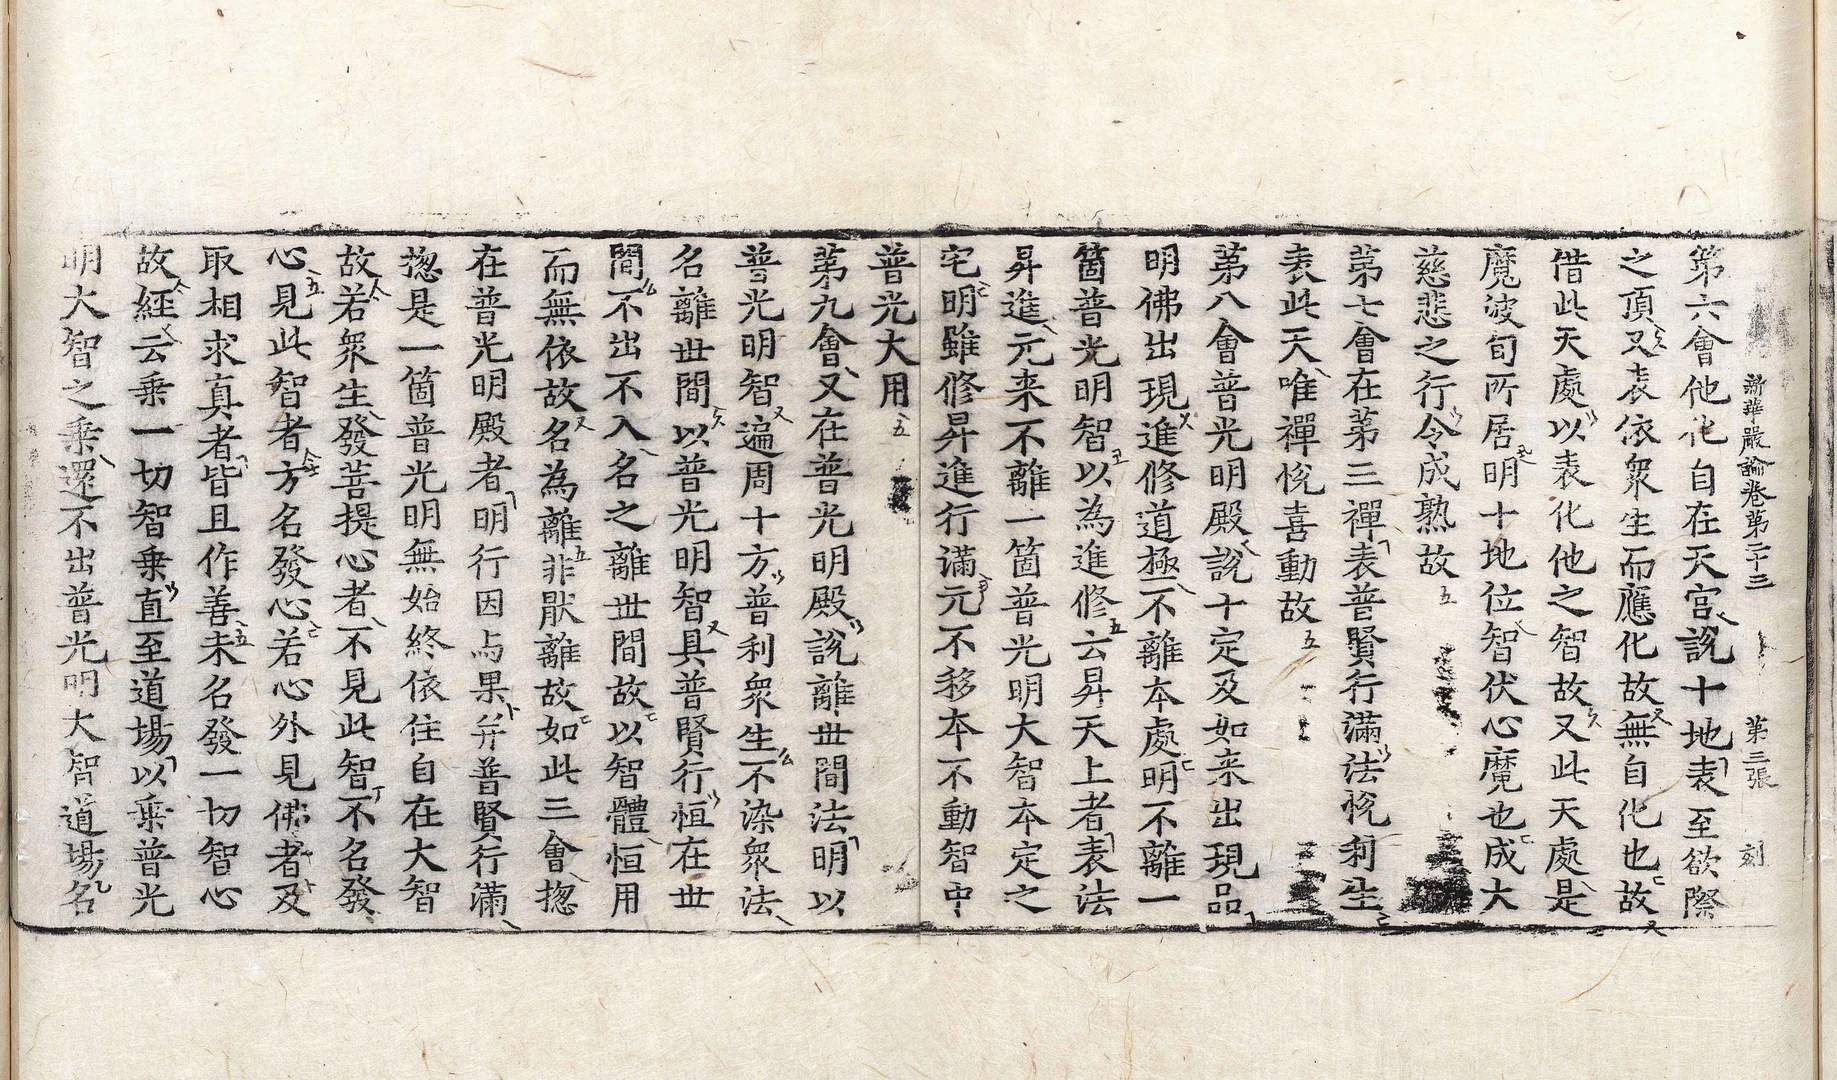 新華嚴論卷第二十三 第三張 刻
第六會他化自在天宮說十地表至欲際
之頂又表依衆生而應化故無自化也故
借此天處以表化他之智故又此天處是
魔波旬所居明十地位智伏心魔也成大
慈悲之行令成熟故
第七會在第三禪表普賢行滿法悅利生
表此天唯禪悅喜動故
第八會普光明殿說十定及如来出現品
明佛出現進修道極不離本處明不離一
箇普光明智以為進修云昇天上者表法
昇進元来不離一箇普光明大智本定之
宅明雖修昇進行滿元不移本不動智中
普光大用
第九會又在普光明殿說離世間法明以
普光明智遍周十方普利衆生不染衆法
名離世間以普光明智具普賢行恒在世
間不出不入名之離世間故以智體恒用
而無依故名為離非猒離故如此三會揔
在普光明殿者明行因与果并普賢行滿
揔是一箇普光明無始終依住自在大智
故若衆生發菩提心者不見此智不名發
心見此智者方名發心若心外見佛者及
取相求真者皆且作善未名發一切智心
故經云乗一切智乗直至道場以乗普光
明大智之乗還不出普光明大智道場名